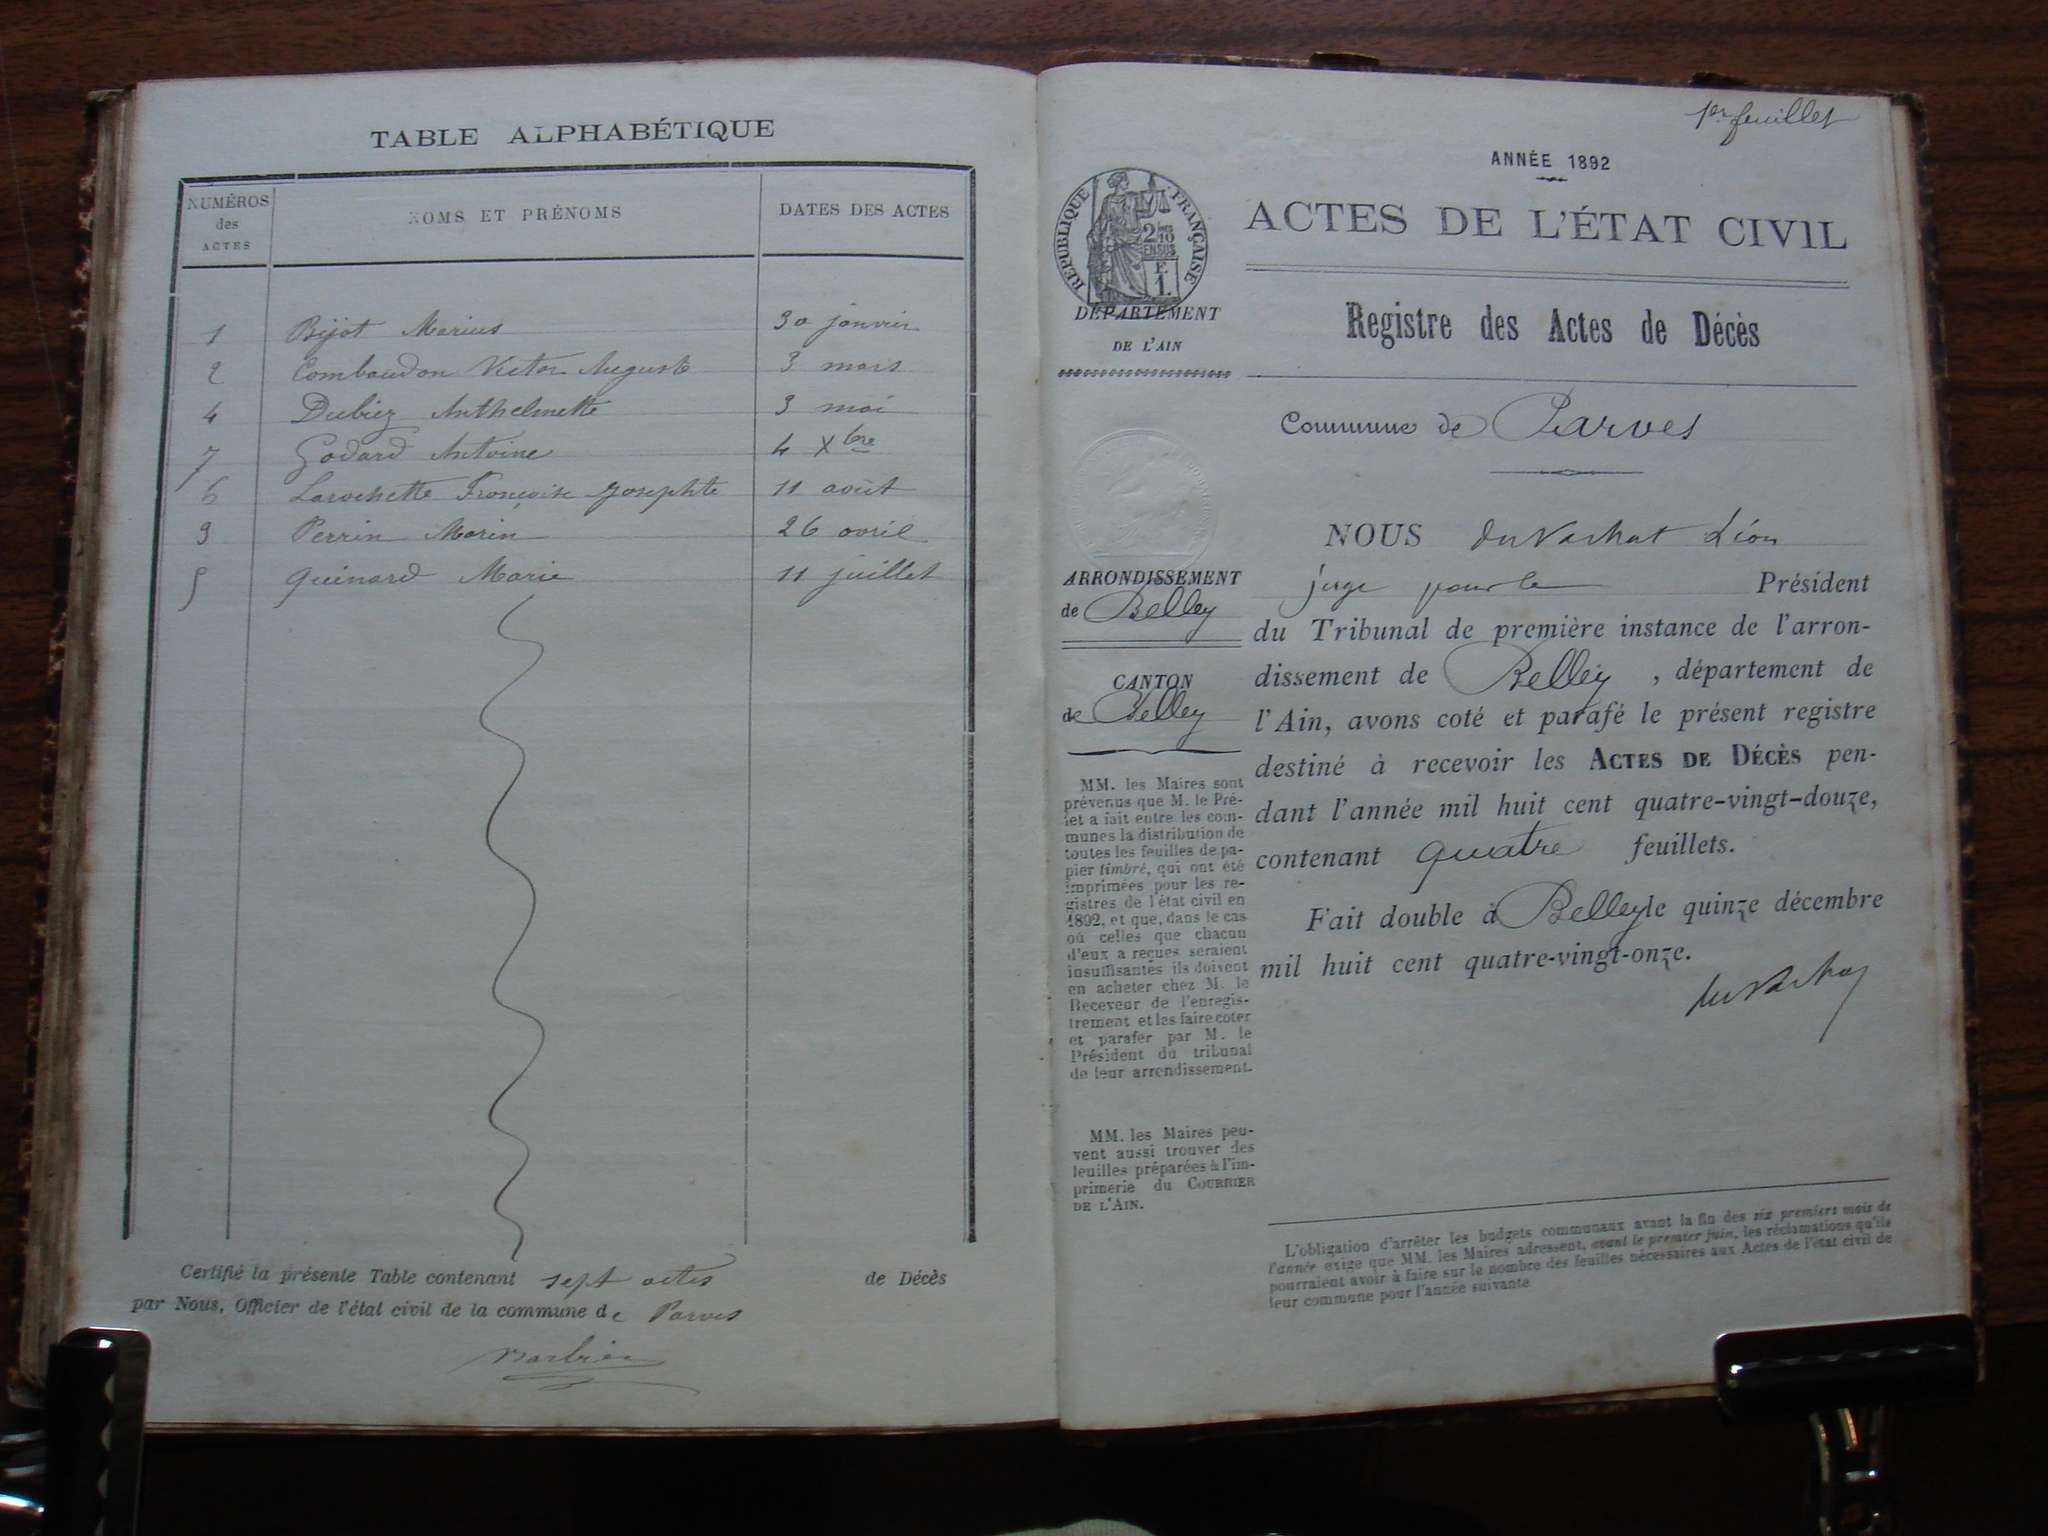 TABLE ALPHABÉTIQUE
NUMÉROS des ACTES | NOMS ET PRÉNOMS | DATES DES ACTES
1 Bijot Marius 30 janvier
2 Combaudon Victor Auguste 3 mars
4 Dubiez Anthelmette 3 mai
7 Godard Antoine 4 Xbre
6 Larochette Françoise Josephte 11 août
3 Perrin Marin 26 avril
5 Quinard Marie 11 juillet
Certifié la présente Table contenant sept actes de Décès
par Nous, Officier de l'état civil de la commune de Parves
Barbier
1er feuillet
ANNÉE 1892
RÉPUBLIQUE FRANÇAISE
2/10 EN SUS
F. 1.
ACTES DE L'ÉTAT CIVIL
DÉPARTEMENT
DE L'AIN
Registre des Actes de Décès
Commune de Parves
ARRONDISSEMENT
de Belley
CANTON
de Belley
MM. les Maires sont
prévenus que M. le Pré-
fet a fait entre les com-
munes la distribution de
toutes les feuilles de pa-
pier timbré, qui ont été
imprimées pour les re-
gistres de l'état civil en
1892, et que, dans le cas
où celles que chacun
d'eux a reçues seraient
insuffisantes ils doivent
en acheter chez M. le
Receveur de l'enregis-
trement et les faire coter
et parafer par M. le
Président du tribunal
de leur arrondissement.
MM. les Maires peu-
vent aussi trouver des
feuilles préparées à l'im-
primerie du COURRIER
DE L'AIN.
NOUS du Vachat Léon
juge pour le Président
du Tribunal de première instance de l'arron-
dissement de Belley, département de
l'Ain, avons coté et parafé le présent registre
destiné à recevoir les ACTES DE DÉCÈS pen-
dant l'année mil huit cent quatre-vingt-douze,
contenant quatre feuillets.
Fait double à Belley le quinze décembre
mil huit cent quatre-vingt-onze.
du Vachat
L'obligation d'arrêter les budgets communaux avant la fin des six premiers mois de
l'année exige que MM. les Maires adressent, avant le premier juin, les réclamations qu'ils
pourraient avoir à faire sur le nombre des feuilles nécessaires aux Actes de l'état civil de
leur commune pour l'année suivante